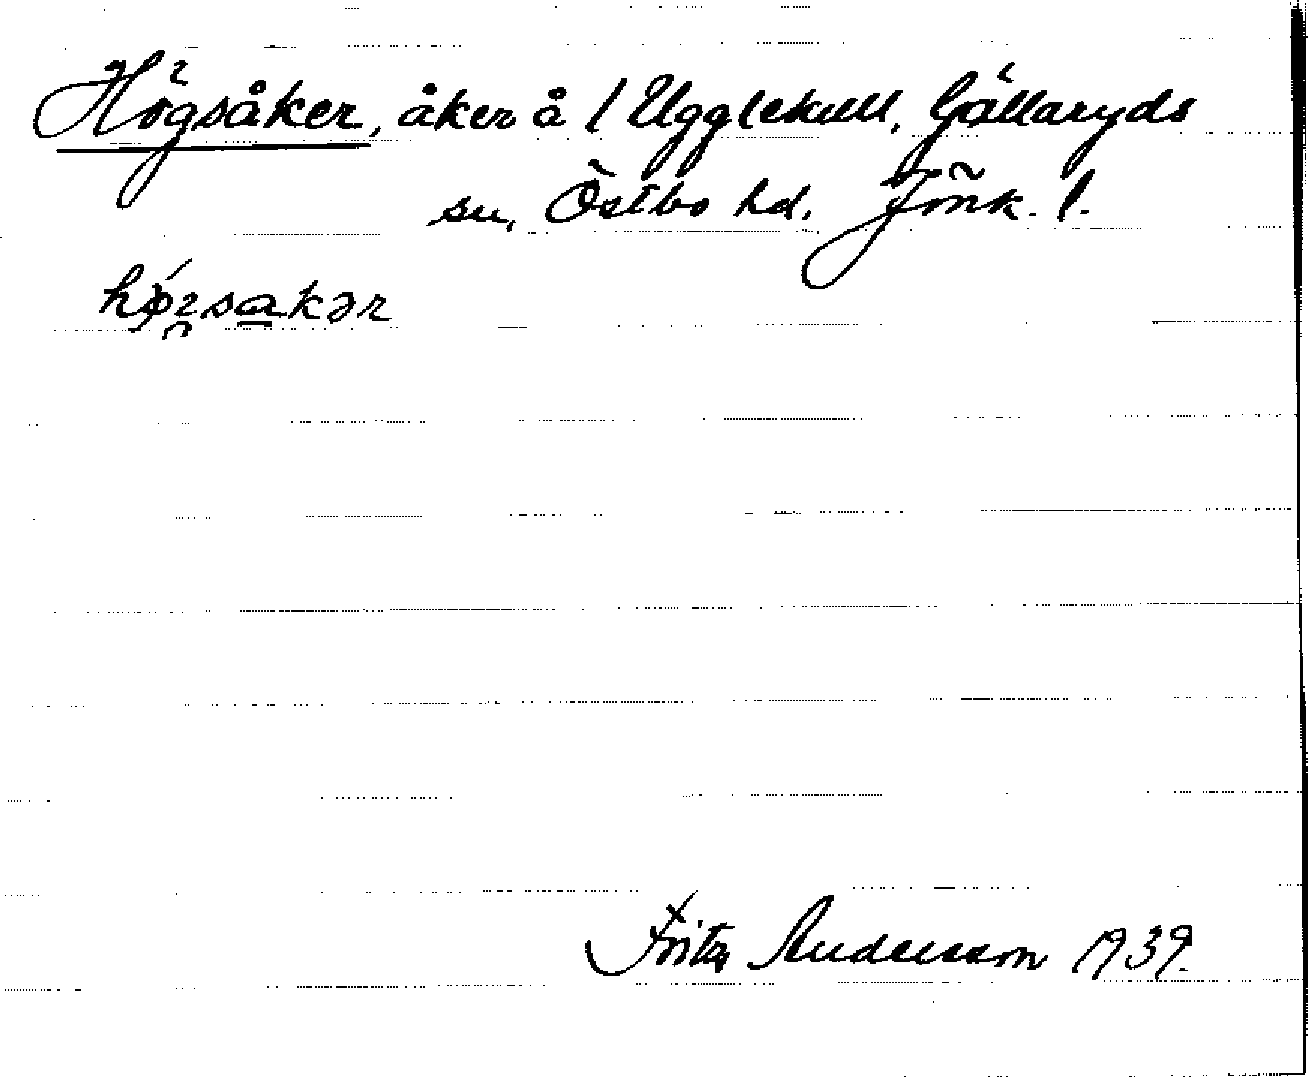 Högsåker, åker å 1 Ugglekull, Gällaryds
sn, Östbo hd. Jönk. l.
Fritz Andersson 1939.